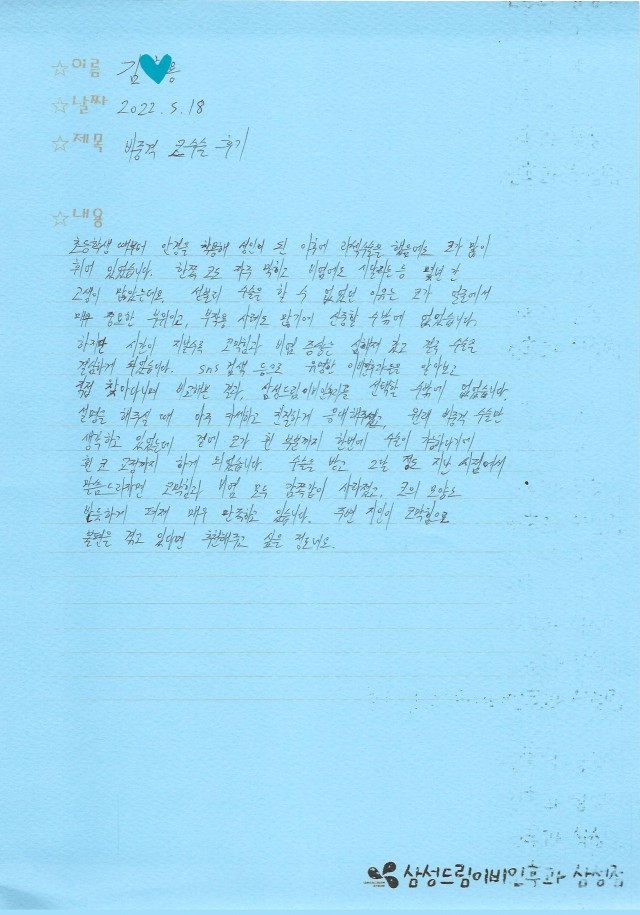 ☆이름 김♥용
☆날짜 2022. 5. 18
☆제목 비중격 코수술 후기
☆내용
초등학생 때부터 안경을 착용해 성인이 된 이후에 라섹수술을 했음에도 코가 많이
휘어 있었습니다. 한쪽 코도 자주 막히고 비염에도 시달리는 등 몇년 간
고생이 많았는데요, 섣불리 수술을 할 수 없었던 이유는 코가 얼굴에서
매우 중요한 부위이고, 부작용 사례도 많기에 신중할 수밖에 없었습니다.
하지만 시간이 지날수록 코막힘과 비염 증상은 심해져 갔고 결국 수술을
결심하게 되었습니다. sns 검색 등으로 유명한 이비인후과들을 알아보고
직접 찾아다니며 비교해본 결과, 삼성드림이비인후과를 선택할 수밖에 없었습니다.
설명을 해주실 때 아주 자세하고 친절하게 응대해주셨고, 원래 비중격 수술만
생각하고 있었는데 겉에 코가 휜 부분까지 한번에 수술이 가능하기에
휜 코 교정까지 하게 되었습니다. 수술을 받고 2달 정도 지난 시점에서
말씀드리자면 코막힘과 비염 모두 감쪽같이 사라졌고, 코의 모양도
반듯하게 펴져 매우 만족하고 있습니다. 주변 지인이 코막힘으로
불편을 겪고 있다면 추천해주고 싶을 정도네요.
삼성드림이비인후과 삼성점